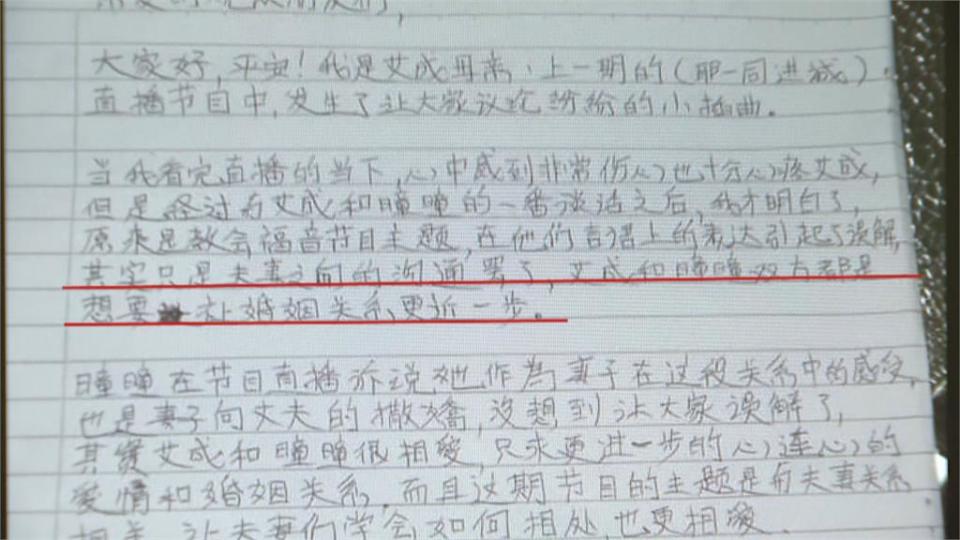 大家好,平安!我是艾成母亲,上一期的(耶一同进城)
直播节目中,发生了让大家议论纷纷的小插曲。
当我看完直播的当下,心中感到非常伤心也十分心疼艾成,
但是经过与艾成和瞳瞳的一番谈话之后,我才明白了,
原来是教会福音节目主题,在他们言语上的表达引起了误解,
其实只是夫妻之间的沟通罢了,艾成和瞳瞳双方都是
想要 让婚姻关系更近一步。
瞳瞳在节目直播诉说她作為妻子在这段关系中的感受,
也是妻子向丈夫的撒嬌,沒想到让大家误解了,
其實艾成和瞳瞳很相愛,只求更进一步的心连心的
愛情和婚姻关系,而且这期节目的主题是有夫妻关系
相关,让夫妻们学会如何相处也更相愛.